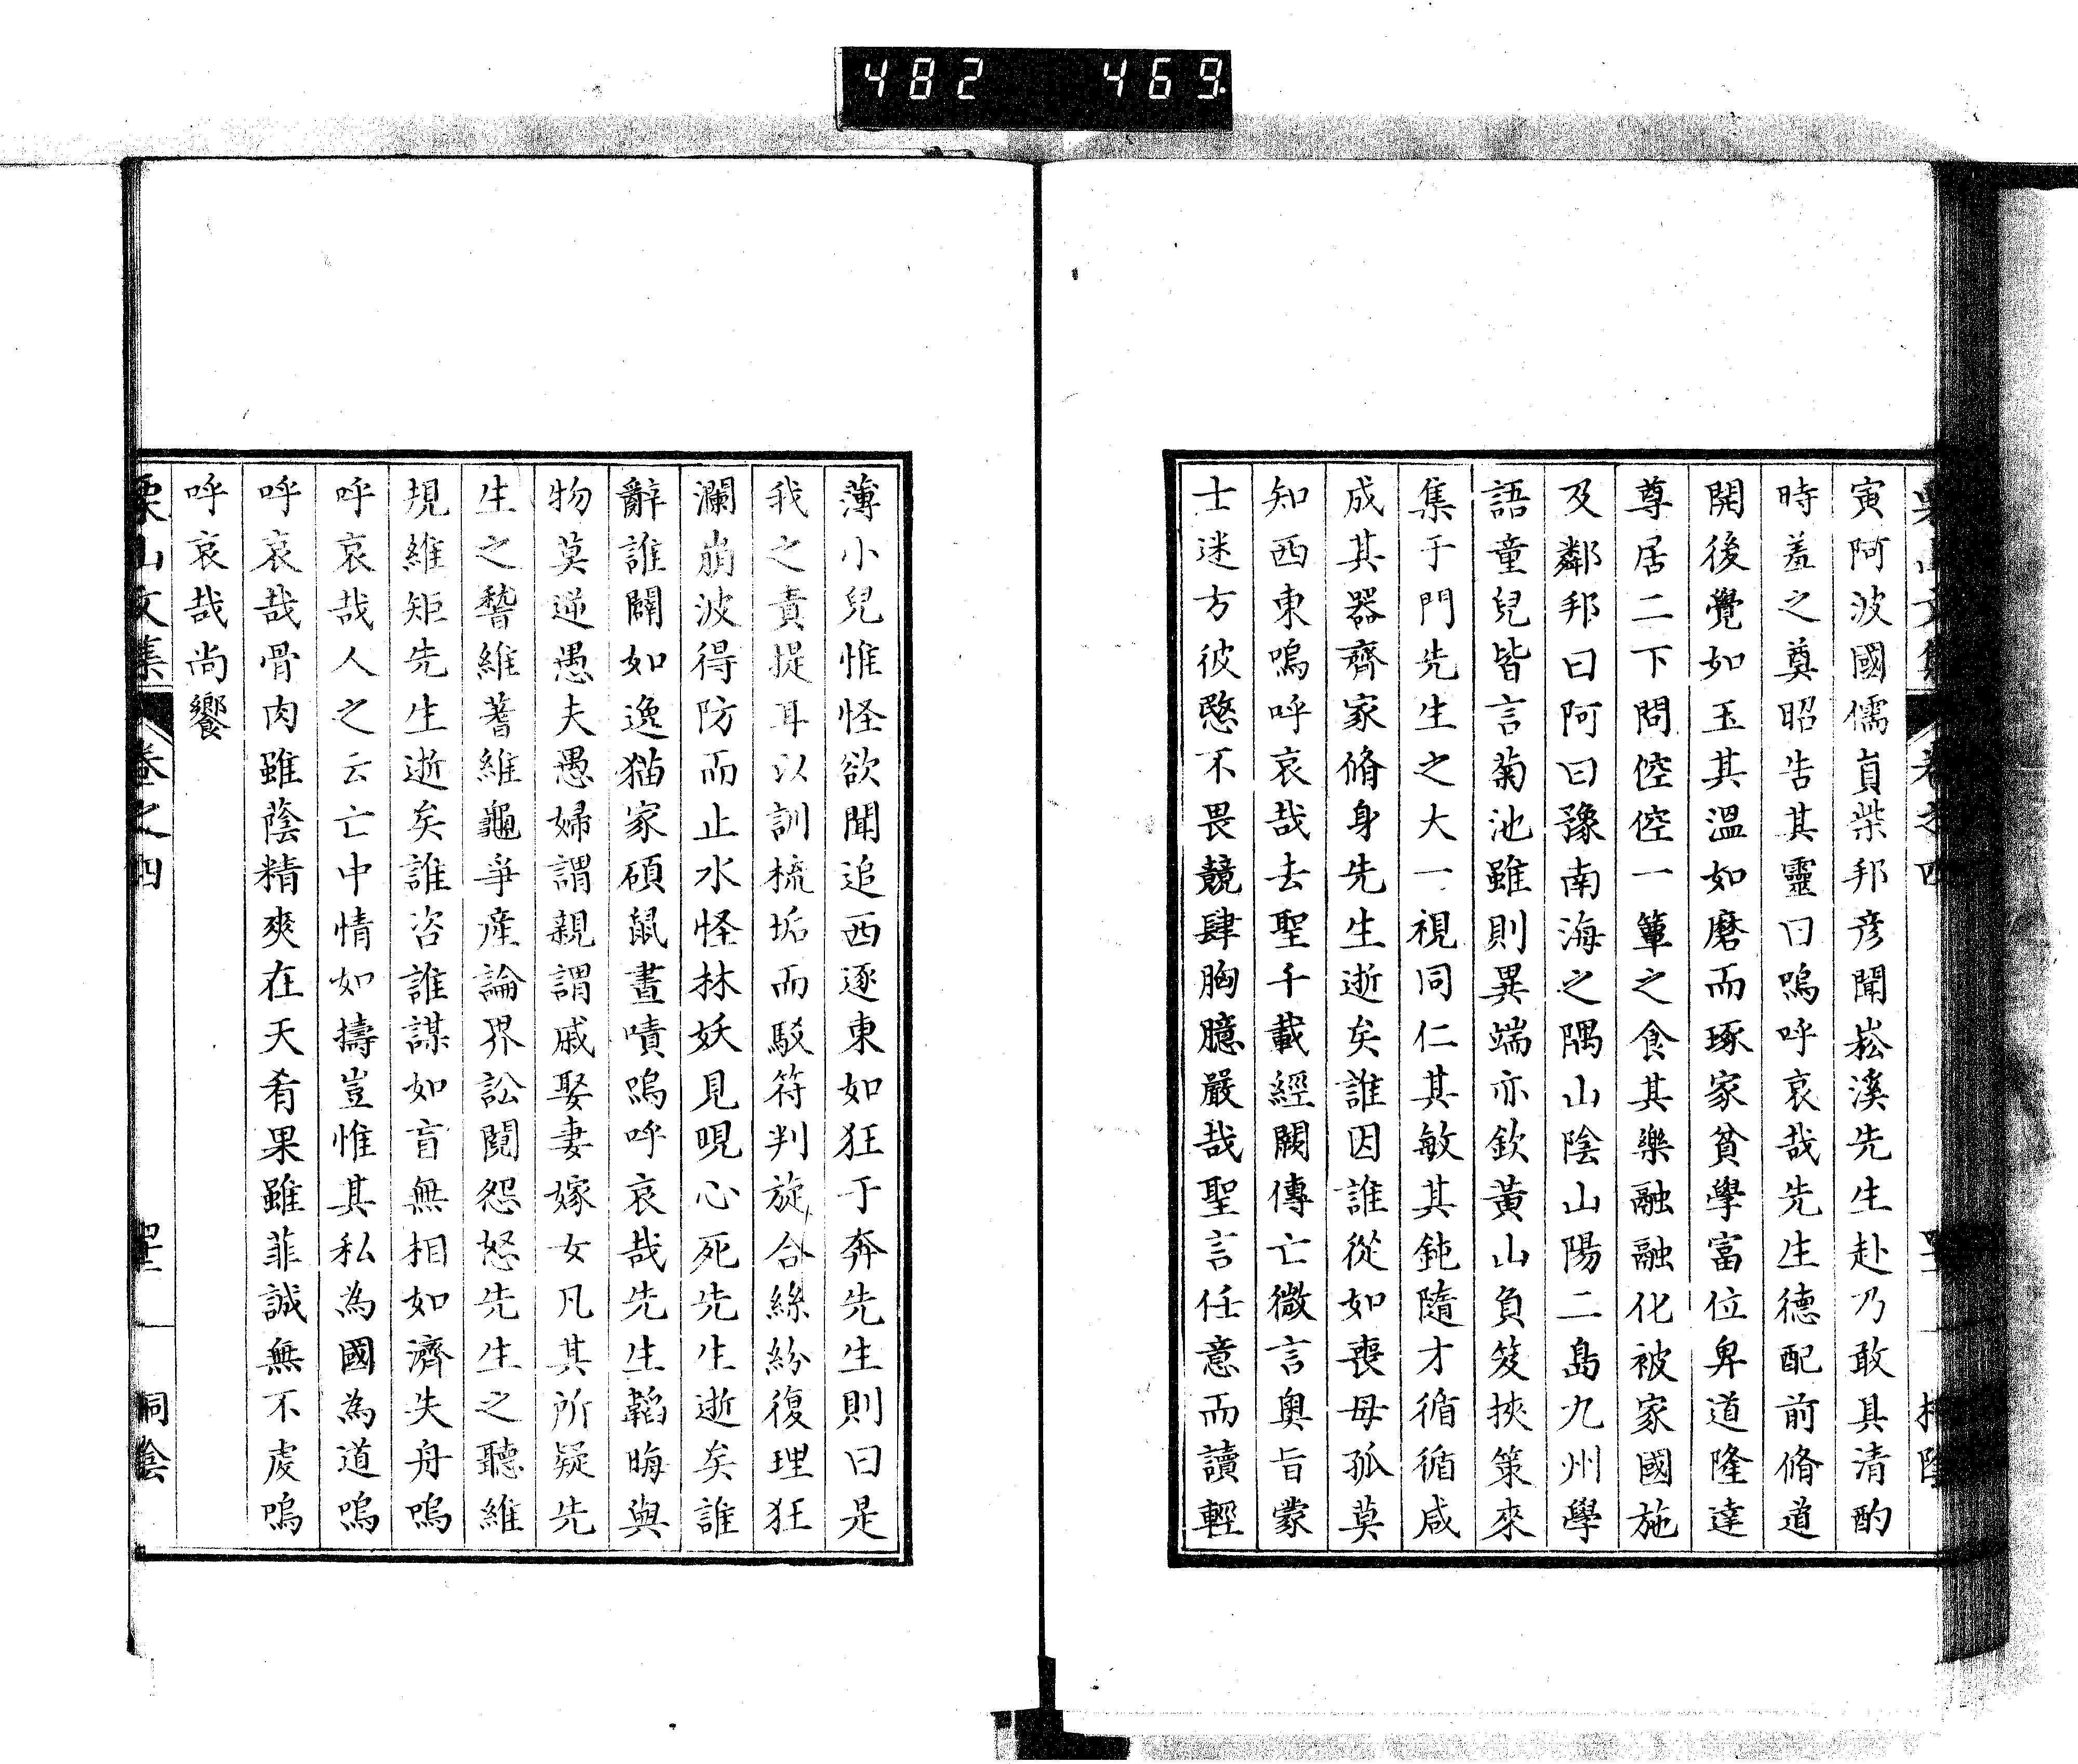 482 469
寅阿波國儒員柴邦彦聞崧溪先生赴乃敢具清酌
時羞之奠昭告其靈曰嗚呼哀哉先生德配前脩道
開後覺如玉其溫如磨而琢家貧學富位卑道隆達
尊居二下問倥倥一簞之食其樂融融化被家國施
及鄰邦曰阿曰豫南海之隅山陰山陽二島九州學
語童兒皆言菊池雖則異端亦欽黃山負笈挾策來
集于門先生之大一視同仁其敏其鈍隨才循循咸
成其器齊家脩身先生逝矣誰因誰從如喪母孤莫
知西東嗚呼哀哉去聖千載經闕傳亡微言奧旨蒙
士迷方彼愍不畏競肆胸臆嚴哉聖言任意而讀輕
薄小兒惟怪欲聞追西逐東如狂于奔先生則曰是
我之責提耳以訓梳垢而駁符判旋合絲紛復理狂
瀾崩波得防而止水怪林妖見晛心死先生逝矣誰
辭誰闢如逸猫家碩鼠晝嘖嗚呼哀哉先生韜晦與
物莫逆愚夫愚婦謂親謂戚娶妻嫁女凡其所疑先
生之稽維蓍維龜爭產論界訟鬩怨怒先生之聽維
規維矩先生逝矣誰咨誰謀如盲無相如濟失舟嗚
呼哀哉人之云亡中情如擣豈惟其私為國為道嗚
呼哀哉骨肉雖蔭精爽在天肴果雖菲誠無不虔嗚
呼哀哉尚饗
栗山文集 卷之四